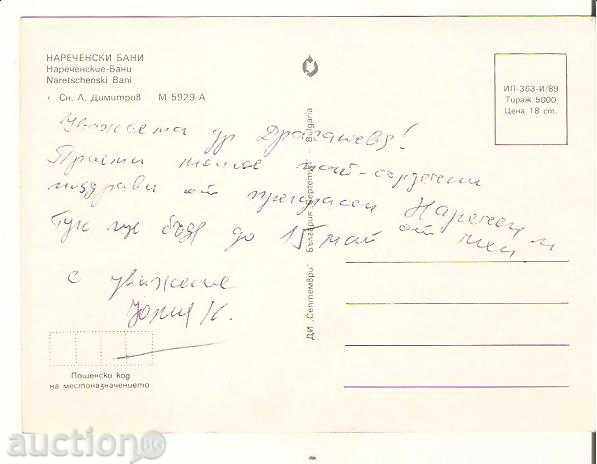 НАРЕЧЕНСКИ БАНИ
Нареченские-Бани
Naretschenski Bani
Сн. Л. Димитров М 5929-А
ИП-363-И/89
Тираж 5000
Цена 18 ст.
Уважаема др Драганова!
Приеми моите най-сърдечни
поздрави от прекрасен Наречен и
Тук ще бъда до 15 май от мен.
с уважение
Юлия К.
ДИ „Септември" България Септември Bulgaria
Пощенски код
на местоназначението
auction BG